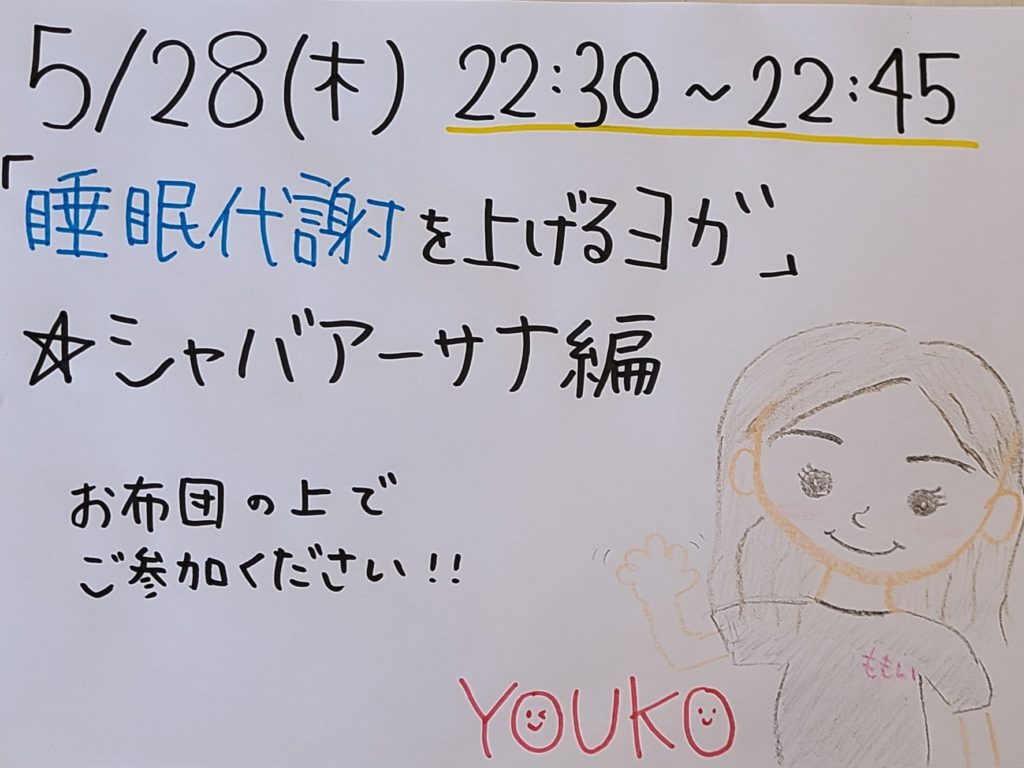 5/28(木) 22:30～22:45
「睡眠代謝を上げるヨガ」
☆シャバアーサナ編
お布団の上で
ご参加ください!!
ももい
YOUKO